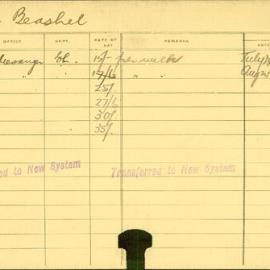 Beashel
OFFICE DEPT. RATE OF PAY REMARKS DATE
Messenger Ch. 15/- per week July
" " 17/6 " " Aug
25/-
27/6
30/-
35/-
ed to New System Transferred to New System